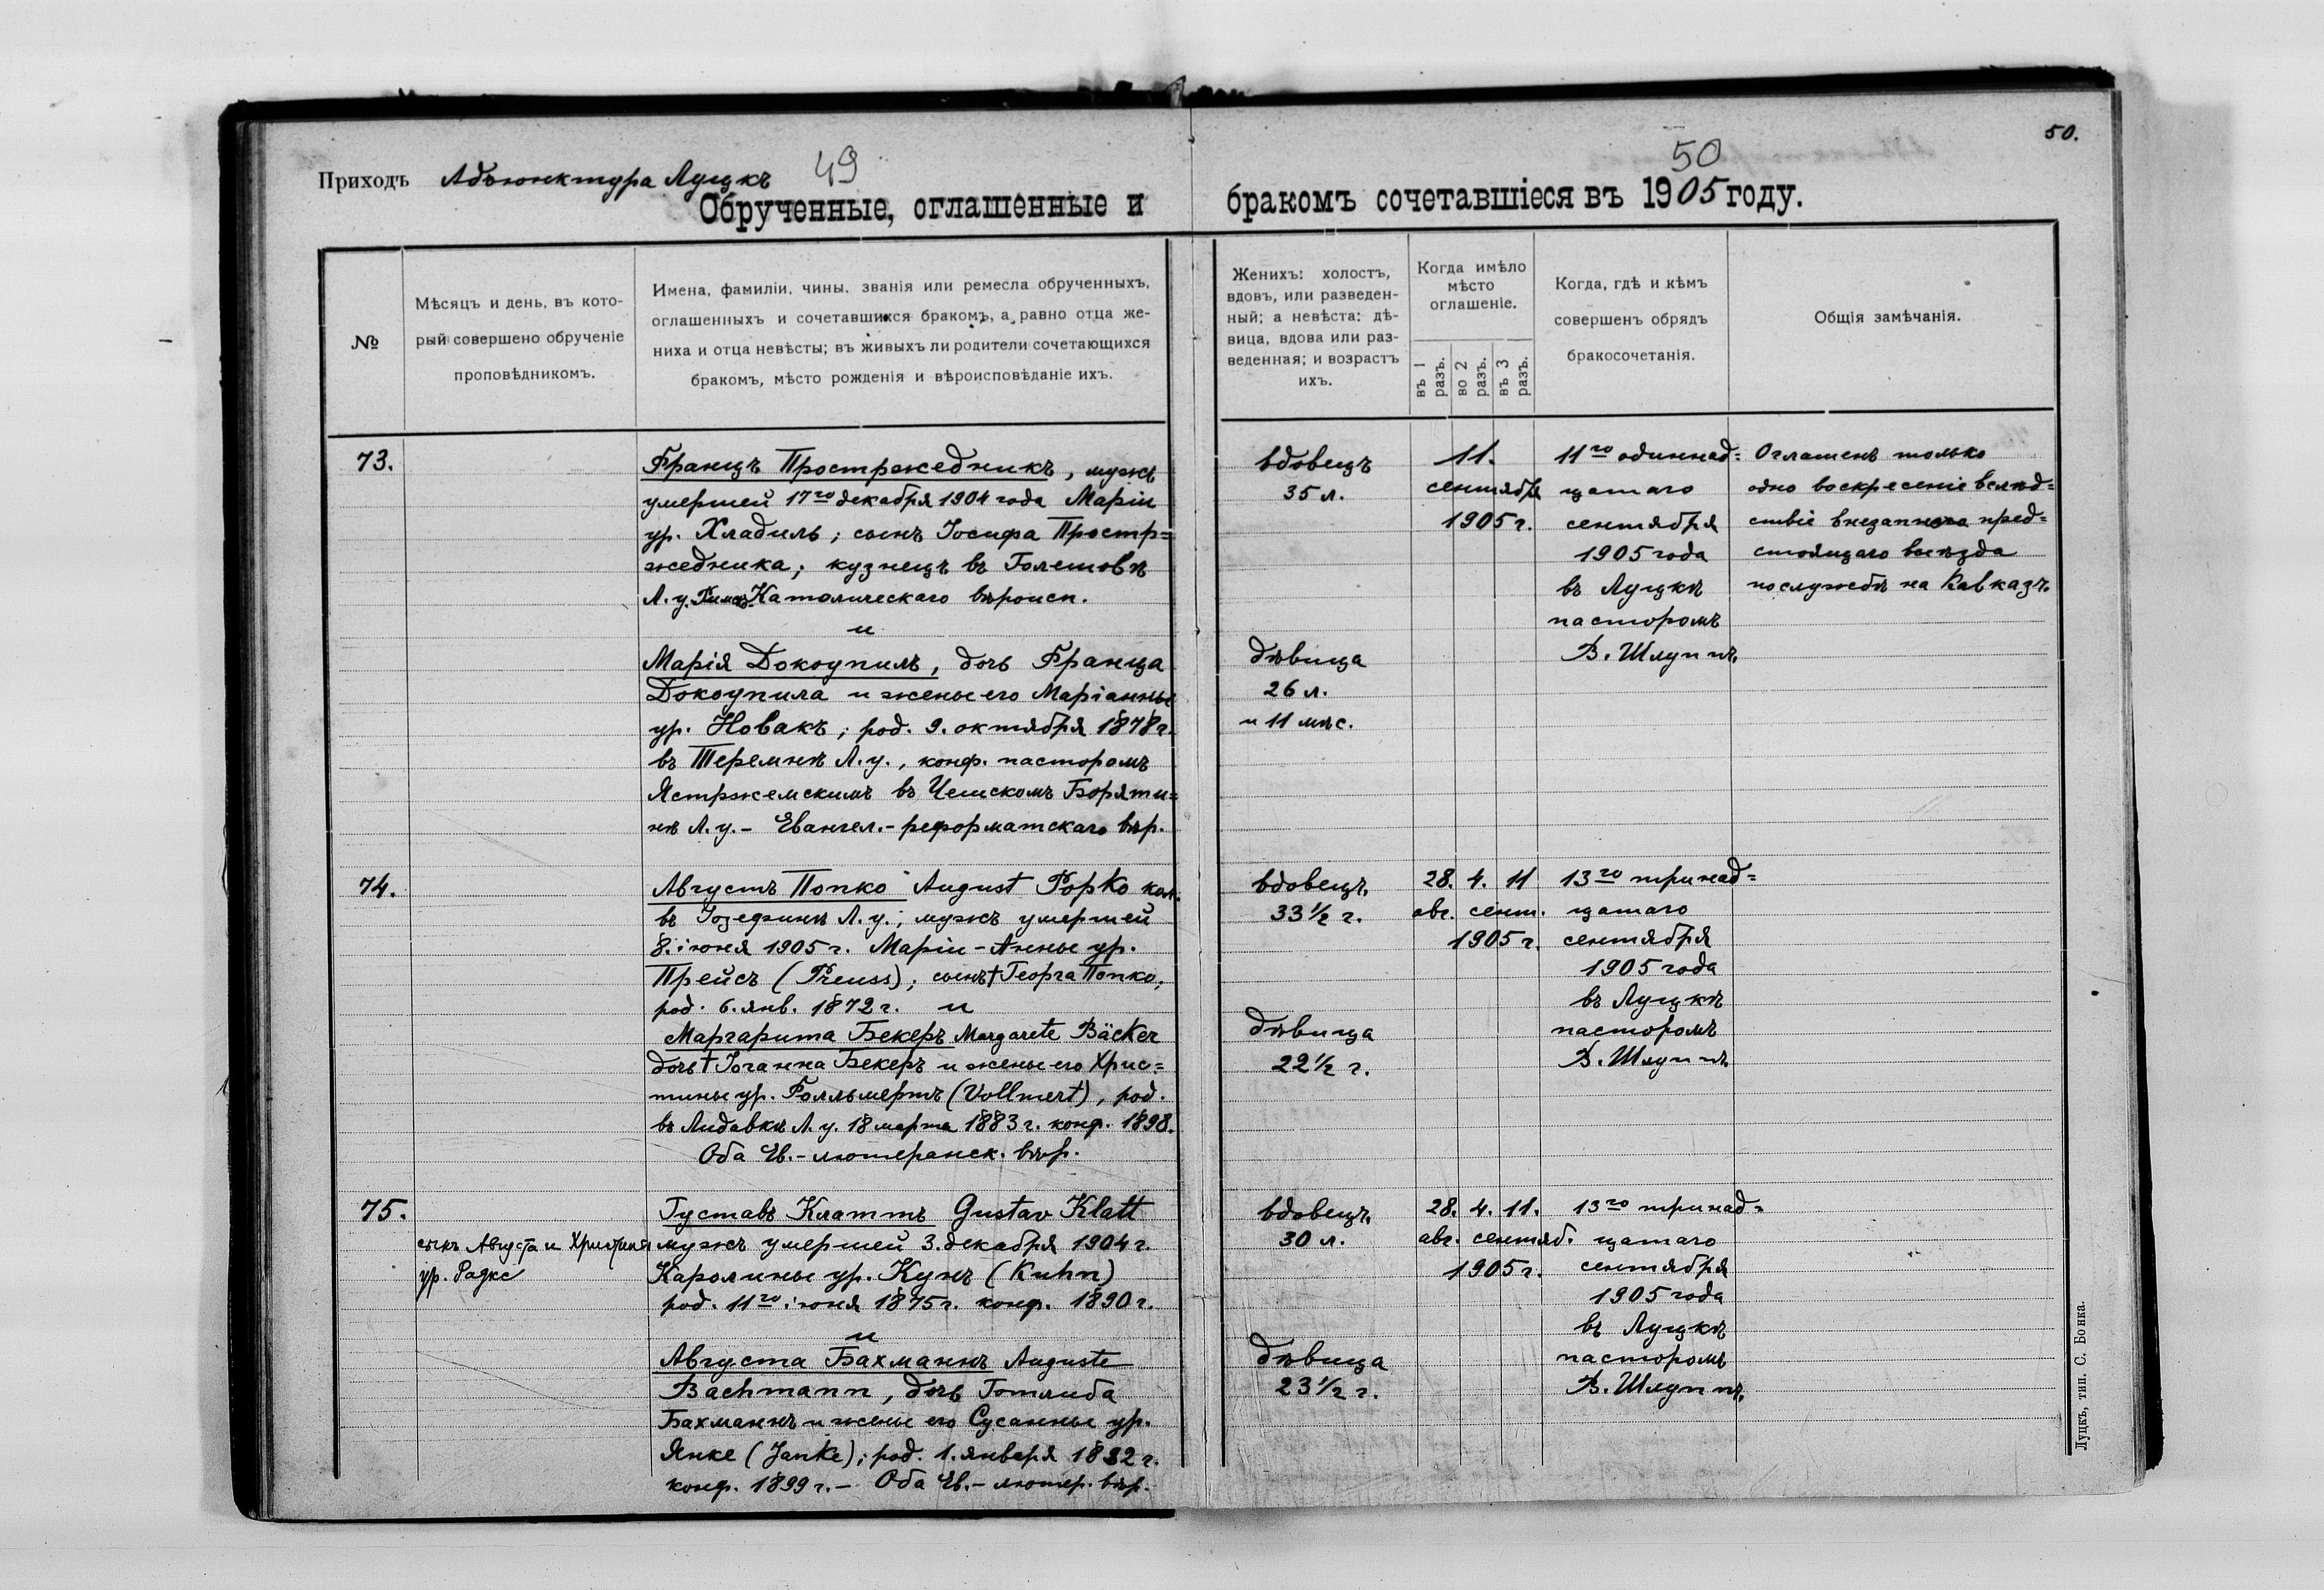 50.
Приходъ Адъюнктура Луцкъ 49
50
Обрученные, оглашенные и бракомъ сочетавшіеся въ 1905 году.
№
Мѣсяцъ и день, въ кото-
рый совершено обрученіе
проповѣдникомъ.
Имена, фамиліи, чины, званія или ремесла обрученныхъ,
оглашенныхъ и сочетавшихся бракомъ, а равно отца же-
ниха и отца невѣсты; въ живыхъ ли родители сочетающихся
бракомъ, мѣсто рожденія и вѣроисповѣданіе ихъ.
Женихъ: холостъ,
вдовъ, или разведен-
ный; а невѣста: дѣ-
вица, вдова или раз-
веденная; и возрастъ
ихъ.
Когда имѣло
мѣсто
оглашеніе.
въ 1 разъ.
во 2 разъ.
въ 3 разъ.
Когда, гдѣ и кѣмъ
совершенъ обрядъ
бракосочетанія.
Общія замѣчанія.
73.
Францъ Простржедникъ, мужъ
умершей 17го декабря 1904 года Маріи
ур. Хладиль; сынъ Іосифа Простр=
жедника; кузнецъ въ Голешовѣ
Л. у. Римск. Католическаго вѣроисп.
и
Марія Докоупилъ, дочь Франца
Докоупила и жены его Маріанны
ур. Новакъ; род. 9. октября 1878 г.
въ Теремнѣ Л. у., конф. пасторомъ
Ястржемскимъ въ Чешскомъ Боряти=
нѣ Л. у. - Евангел. - реформатскаго вѣр.
вдовецъ
35 л.
дѣвица
26 л.
и 11 мѣс.
11.
сентября
1905 г.
11го одиннад=
цатаго
сентября
1905 года
въ Луцкѣ
пасторомъ
В. Шлуппъ.
Оглашенъ только
одно воскресеніе вслѣд=
ствіе внезапнаго пред=
стоящаго выѣзда
по службѣ на Кавказъ.
74.
Августъ Попко August Popko кол.
въ Іозефинѣ Л. у.; мужъ умершей
8. іюня 1905 г. Маріи-Анны ур.
Прейсъ (Preuss); сынъ † Георга Попко,
род. 6. янв. 1872 г. и
Маргарита Бекеръ Margarete Bäcker
дочь † Іоганна Бекеръ и жены его Хрис=
тины ур. Фолльмертъ (Vollmert), род.
въ Лидавкѣ Л. у. 18 марта 1883 г. конф. 1898.
Оба Ев.-лютеранск. вѣр.
вдовецъ,
33 1/2 г.
дѣвица
22 1/2 г.
28. 4. 11
авг. сент.
1905 г.
13го тринад=
цатаго
сентября
1905 года
въ Луцкѣ
пасторомъ
В. Шлуппъ
75.
сынъ Августа и Христины
ур. Радке
Густавъ Клаттъ Gustav Klatt
мужъ умершей 3. декабря 1904 г.
Каролины ур. Кунъ (Kuhn)
род. 11го іюня 1875 г. конф. 1890 г.
и
Августа Бахманнъ Auguste
Bachmann, дочь Готлиба
Бахманнъ и жены его Сусанны ур.
Янке (Janke); род. 1. января 1882 г.
конф. 1899 г. - Оба Ев. - лютер. вѣр.
вдовецъ,
30 л.
дѣвица
23 1/2 г.
28. 4. 11.
авг. сентяб.
1905 г.
13го тринад=
цатаго
сентября
1905 года
въ Луцкѣ
пасторомъ
В. Шлуппъ.
Луцкъ, тип. С. Бонка.